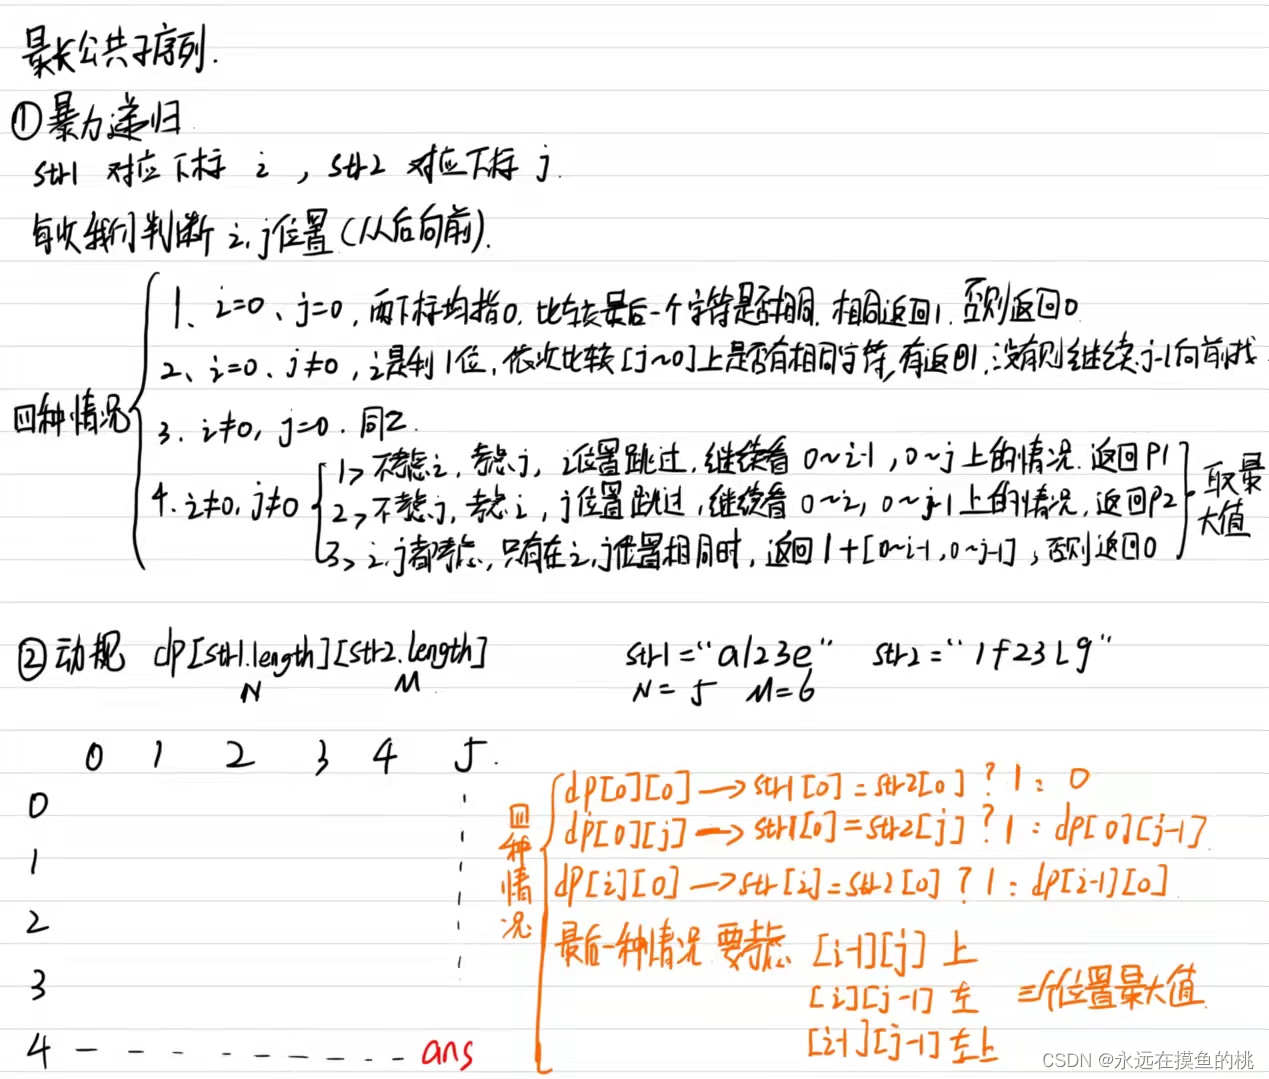 最长公共子序列.
①暴力递归
str1 对应下标 i , str2 对应下标 j.
每次我们判断 i,j位置(从后向前).
四种情况
1、i=0、j=0, 两下标均指0, 比较最后一个字符是否相同. 相同返回1, 否则返回0
2、i=0、j≠0, i是剩1位, 依次比较[j~0]上是否有相同字符, 有返回1, 没有则继续j-1向前找
3. i≠0, j=0. 同2.
4. i≠0, j≠0
1> 不考虑i, 考虑j, i位置跳过, 继续看 0~i-1, 0~j 上的情况. 返回P1
2> 不考虑j, 考虑i, j位置跳过, 继续看 0~i, 0~j-1 上的情况, 返回P2
3> i,j都考虑, 只有在i,j位置相同时, 返回 1+[0~i-1, 0~j-1], 否则返回0
取最大值
②动规 dp[str1.length][str2.length]
N M
str1="a123e" str2="1f23Lg"
N=5 M=6
0 1 2 3 4 5.
0
1
2
3
4 ans
四种情况
dp[0][0]→str1[0]=str2[0]?1:0
dp[0][j]→str1[0]=str2[j]?1:dp[0][j-1]
dp[i][0]→str[i]=str2[0]?1:dp[i-1][0]
最后一种情况 要考虑 [i-1][j] 上
[i][j-1] 左
[i-1][j-1] 左上
三个位置最大值
CSDN @永远在摸鱼的桃